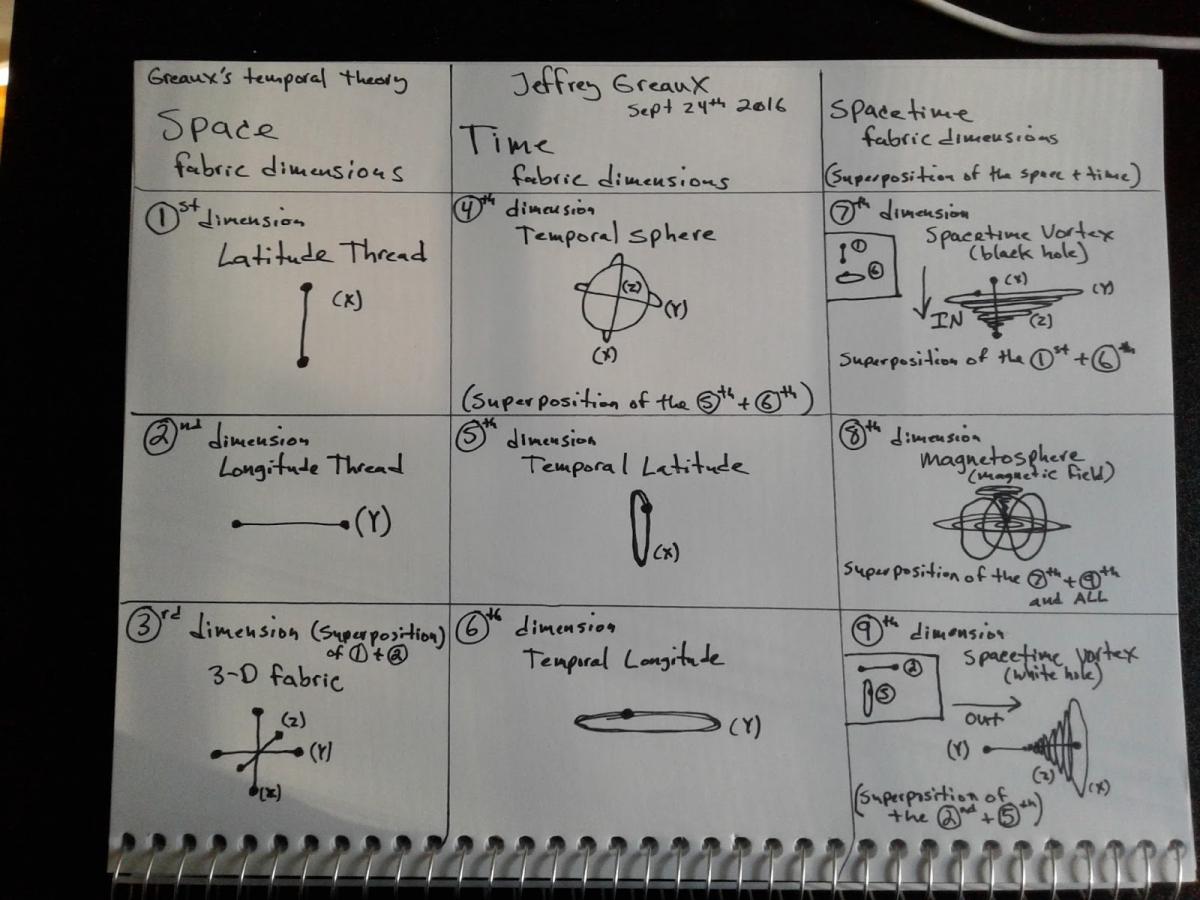 Greaux's temporal theory
Space
fabric dimensions
Jeffrey Greaux
Sept 24th 2016
Time
fabric dimensions
Spacetime
fabric dimensions
(Superposition of the space + time)
1st dimension
Latitude Thread
(X)
4th dimension
Temporal Sphere
(Z)
(Y)
(X)
(Superposition of the 5th + 6th)
7th dimension
Spacetime Vortex
(black hole)
1
6
IN
(X)
(Y)
(Z)
Superposition of the 1st + 6th
2nd dimension
Longitude Thread
(Y)
5th dimension
Temporal Latitude
(X)
8th dimension
Magnetosphere
(magnetic field)
Superposition of the 7th + 9th
and ALL
3rd dimension (Superposition)
of 1 + 2
3-D fabric
(Z)
(Y)
(X)
6th dimension
Temporal Longitude
(Y)
9th dimension
Spacetime Vortex
(white hole)
2
5
OUT
(Y)
(Z)
(X)
(Superposition of
the 2nd + 5th)